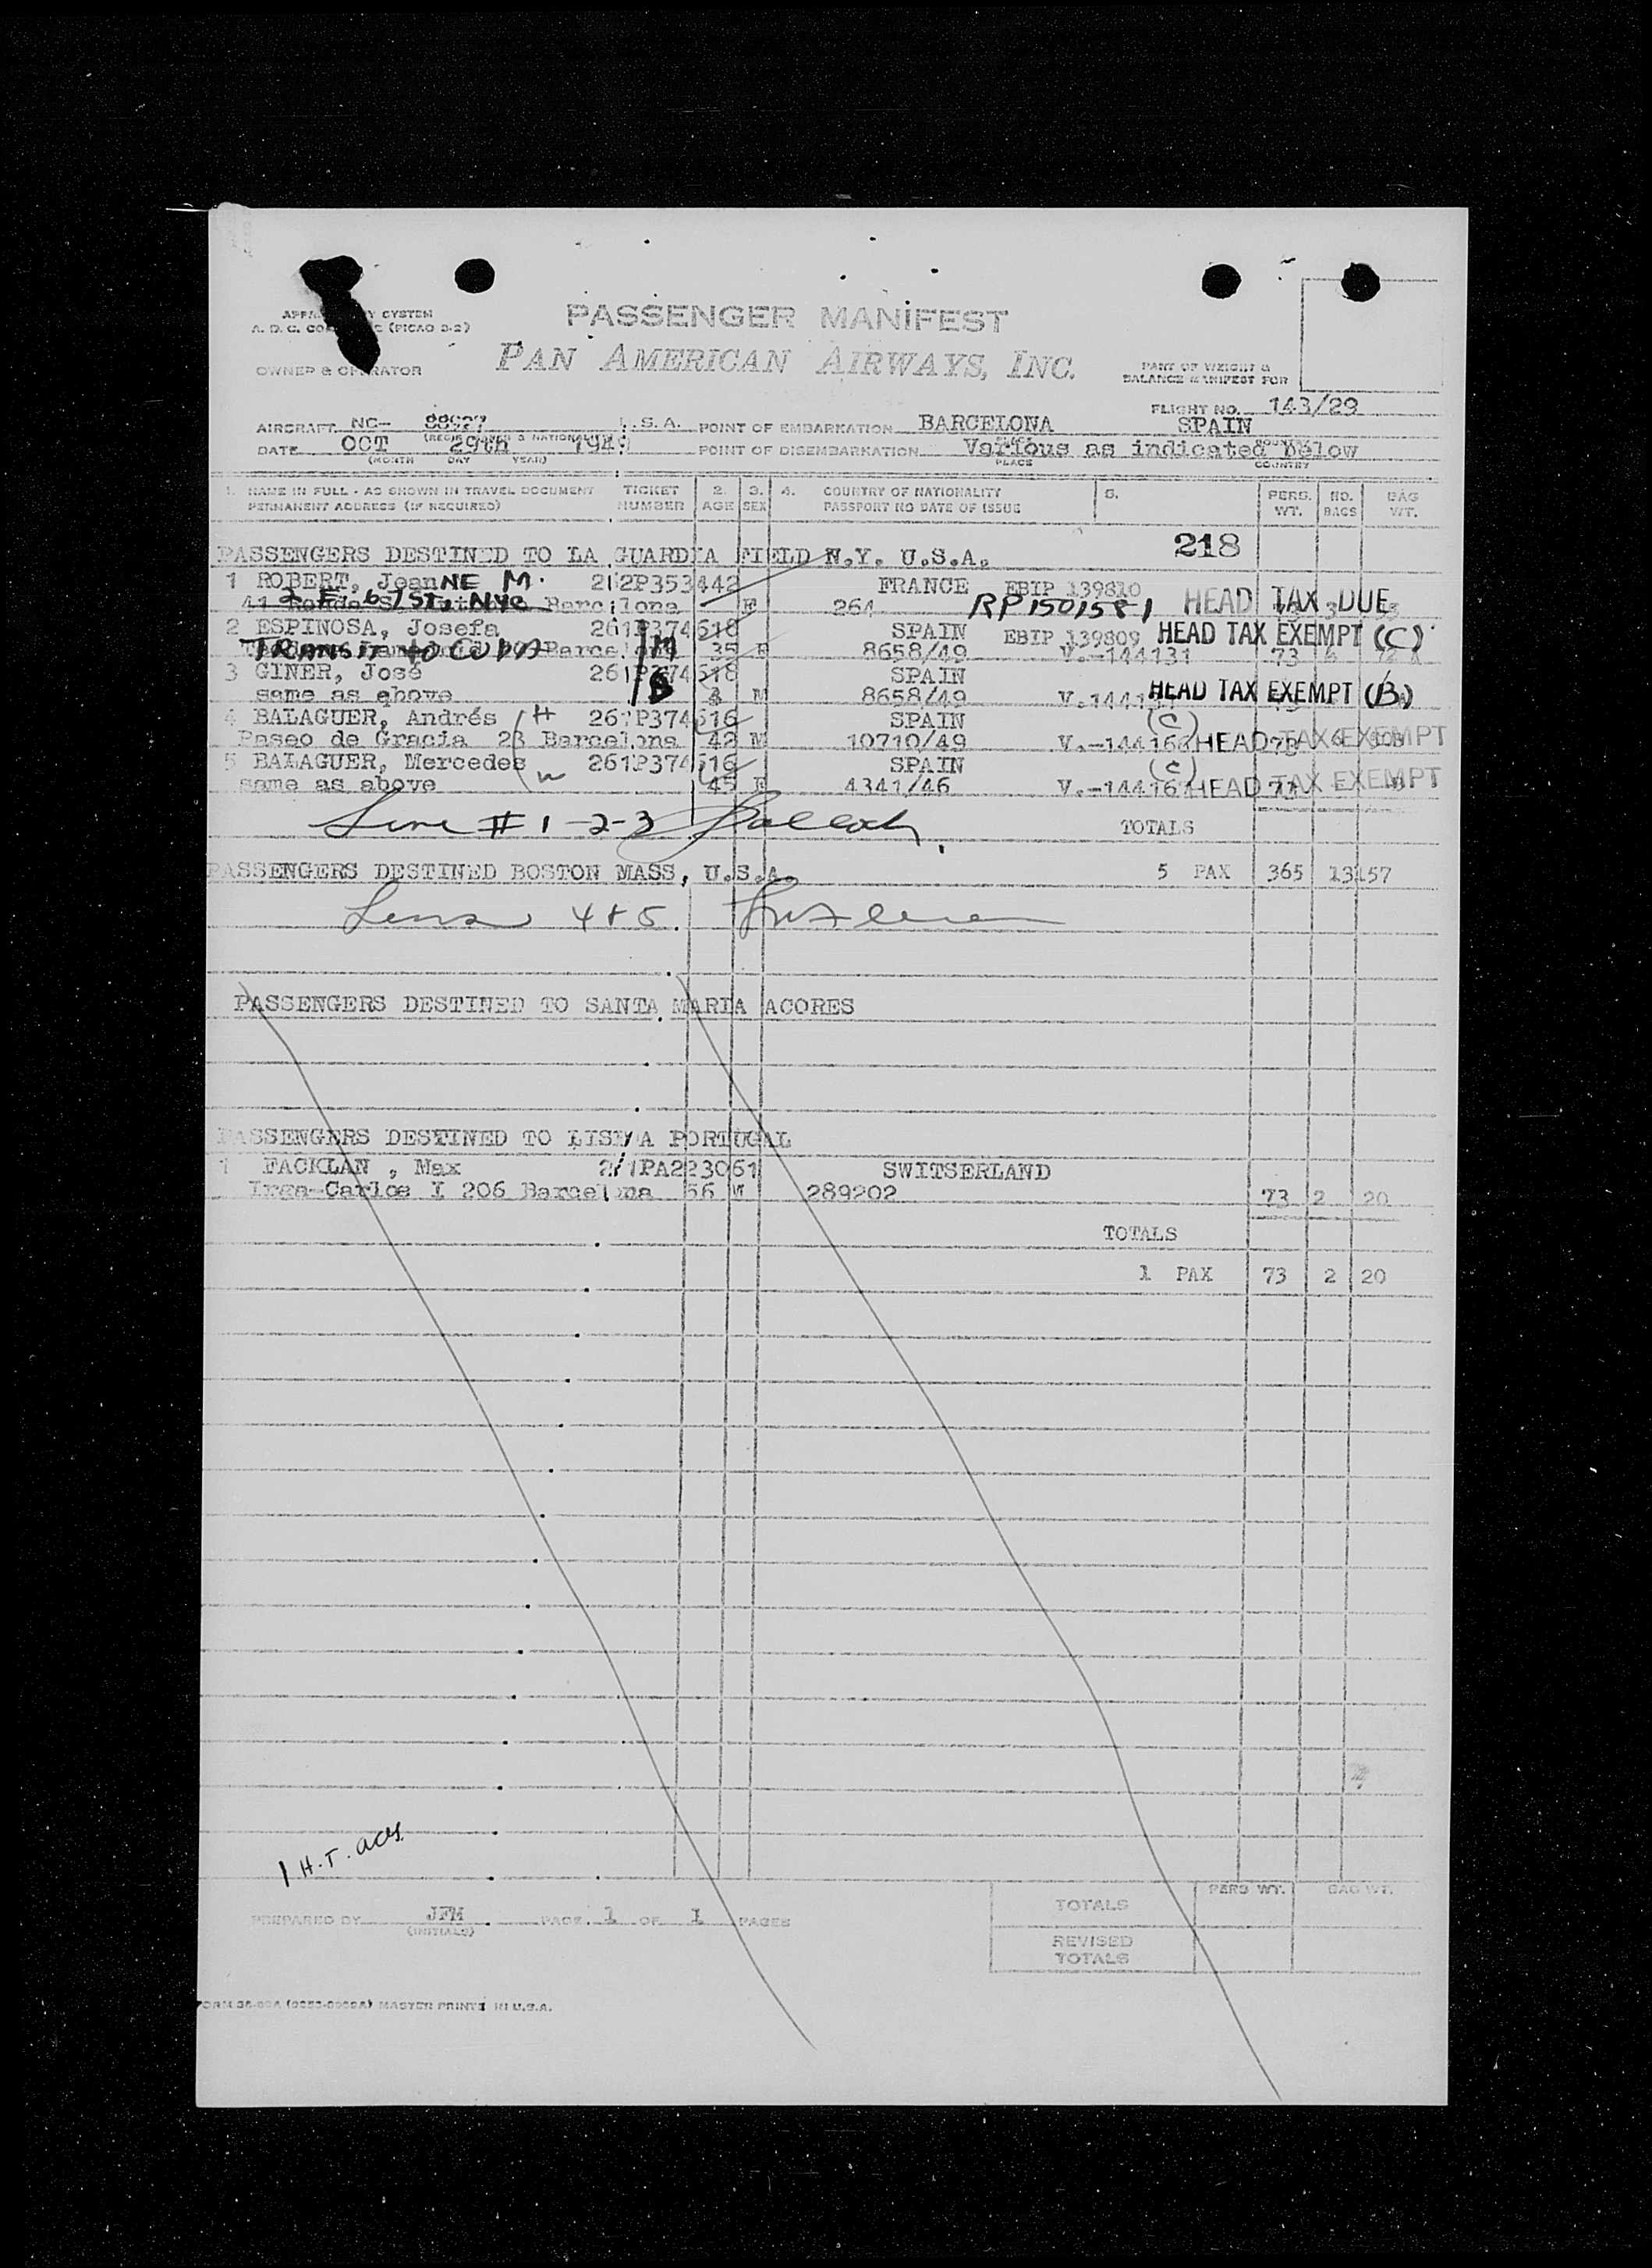 PASSENGER MANIFEST
A. D. C. (PICAO 2-2)
PAN AMERICAN AIRWAYS, INC.
OWNER & OPERATOR
PART OF WEIGHT & BALANCE MANIFEST FOR
FLIGHT NO. 143/29
AIRCRAFT NC- 88927 U.S.A. POINT OF EMBARKATION BARCELONA SPAIN
DATE OCT 29th 1949 POINT OF DISEMBARKATION Various as indicated below
(MONTH DAY YEAR) PLACE COUNTRY
1. NAME IN FULL - AS SHOWN IN TRAVEL DOCUMENT TICKET 2. 3. 4. COUNTRY OF NATIONALITY 5. PERS. NO. BAG
PERMANENT ADDRESS (IF REQUIRED) NUMBER AGE SEX PASSPORT NO DATE OF ISSUE WT. BAGS WT.
218
PASSENGERS DESTINED TO LA GUARDIA FIELD N.Y. U.S.A.
1 ROBERT, JeanNE M. 262P353442 FRANCE EBIP 139810
2 E. 61 ST. NYC Barcelona F 264 RP1501581 HEAD TAX DUE
2 ESPINOSA, Josefa 261P374618 SPAIN EBIP 139809 HEAD TAX EXEMPT (C)
TRANSIT to CUBA Barcelona M 35 F 8658/49 V.-144131 73
3 GINER, José 261P374618 SPAIN
same as above B 3 M 8658/49 HEAD TAX EXEMPT (B)
4 BALAGUER, Andrés H 261P374616 SPAIN (C)
Paseo de Gracia 23 Barcelona 42 M 10710/49 HEAD TAX EXEMPT
5 BALAGUER, Mercedes W 261P374616 SPAIN (C)
same as above 45 F 4341/46 HEAD TAX EXEMPT
Line # 1-2-3
TOTALS
PASSENGERS DESTINED BOSTON MASS, U.S.A. 5 PAX 365 13 157
Lines 4 & 5.
PASSENGERS DESTINED TO SANTA MARIA ACORES
PASSENGERS DESTINED TO LISBOA PORTUGAL
1 FACKLAN , Max SWITSERLAND
206 Barcelona 56 M 289202 73 2 20
TOTALS
1 PAX 73 2 20
1 H.T. aces.
PERS WT. BAG WT.
TOTALS
PREPARED BY JFM PAGE 1 OF 1 PAGES
(INITIALS)
REVISED TOTALS
MASTER PRINTED IN U.S.A.